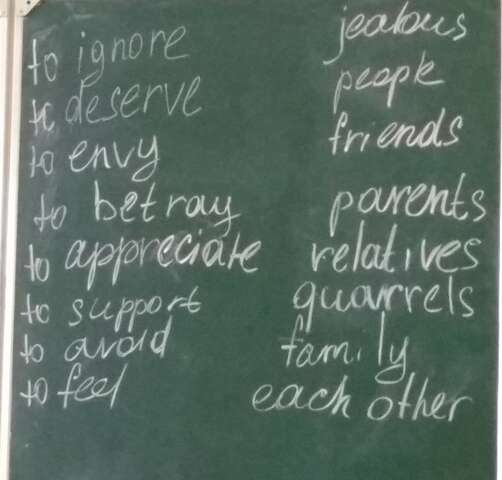 to ignore
to deserve
to envy
to betray
to appreciate
to support
to avoid
to feel
jealous
people
friends
parents
relatives
quarrels
family
each other